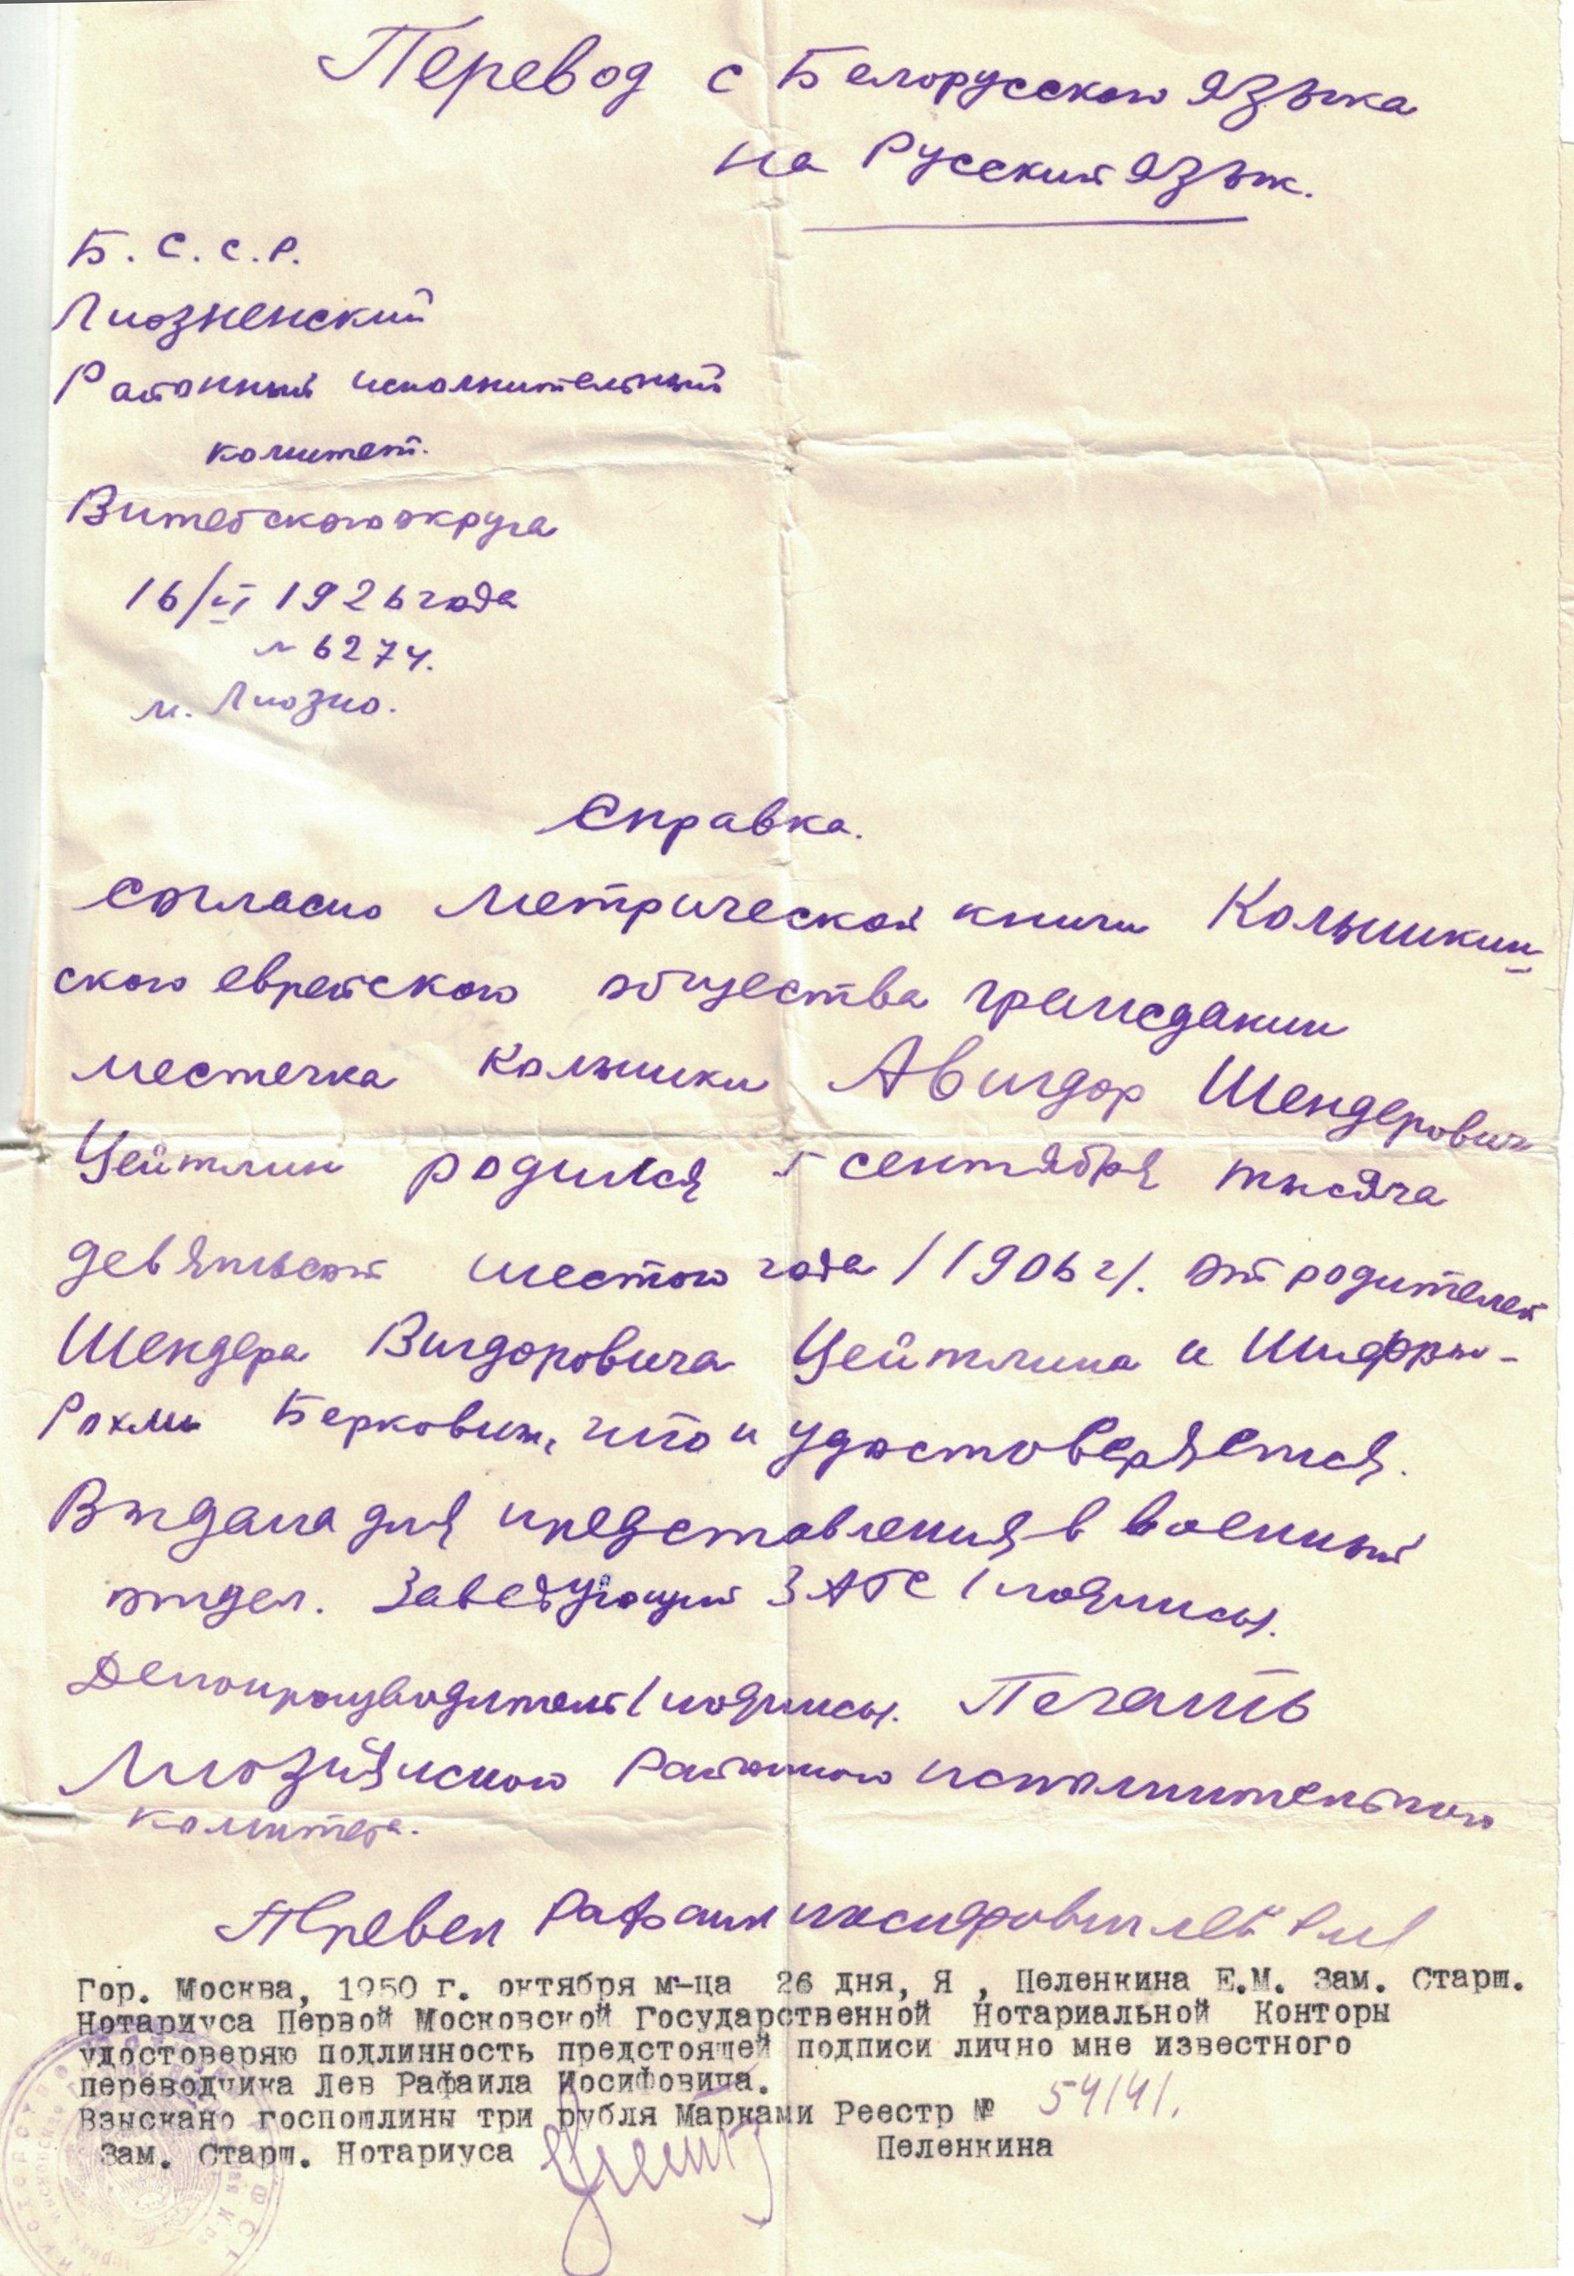 Перевод с Белорусского языка
на Русский язык.
Б.С.С.Р.
Лиозненский
Районный исполнительный
комитет.
Витебского округа
16/VI 1926 года
№ 6274.
м. Лиозно.
Справка.
Согласно метрической книги Колышкин-
ского еврейского общества гражданин
местечка Колышки Авигдор Шендерович
Цейтлин родился 5 сентября тысяча
девятьсот шестого года /1906 г/. от родителей
Шендера Вигдоровича Цейтлина и Шифры-
Рохли Беркович, что и удостоверяется.
Выдана для представления в военный
отдел. Заведующий ЗАГС /подпись/.
Делопроизводитель /подпись/. Печать
Районного исполнительного
комитета.
Перевел Рафаил Иосифович Лев
Гор. Москва, 1950 г. октября м-ца 26 дня, Я , Пеленкина Е.М. Зам. Старш.
Нотариуса Первой Московской Государственной Нотариальной Конторы
удостоверяю подлинность предстоящей подписи лично мне известного
переводчика Лев Рафаила Иосифовича.
Взыскано госпошлины три рубля Марками Реестр № 54141.
Зам. Старш. Нотариуса Пеленкина